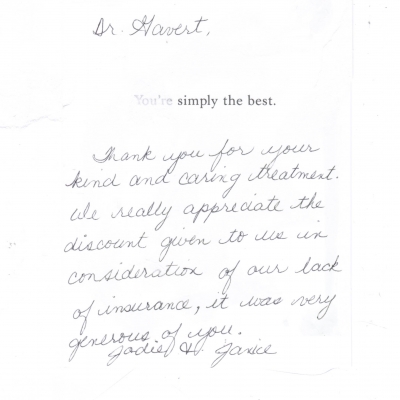 Dr. Havert,
You're simply the best.
Thank you for your
kind and caring treatment.
We really appreciate the
discount given to us in
consideration of our lack
of insurance, it was very
generous of you.
Jodie & Janice